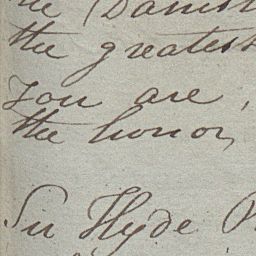 the Danish
the greatest
You are,
the honor,
Sir Hyde P